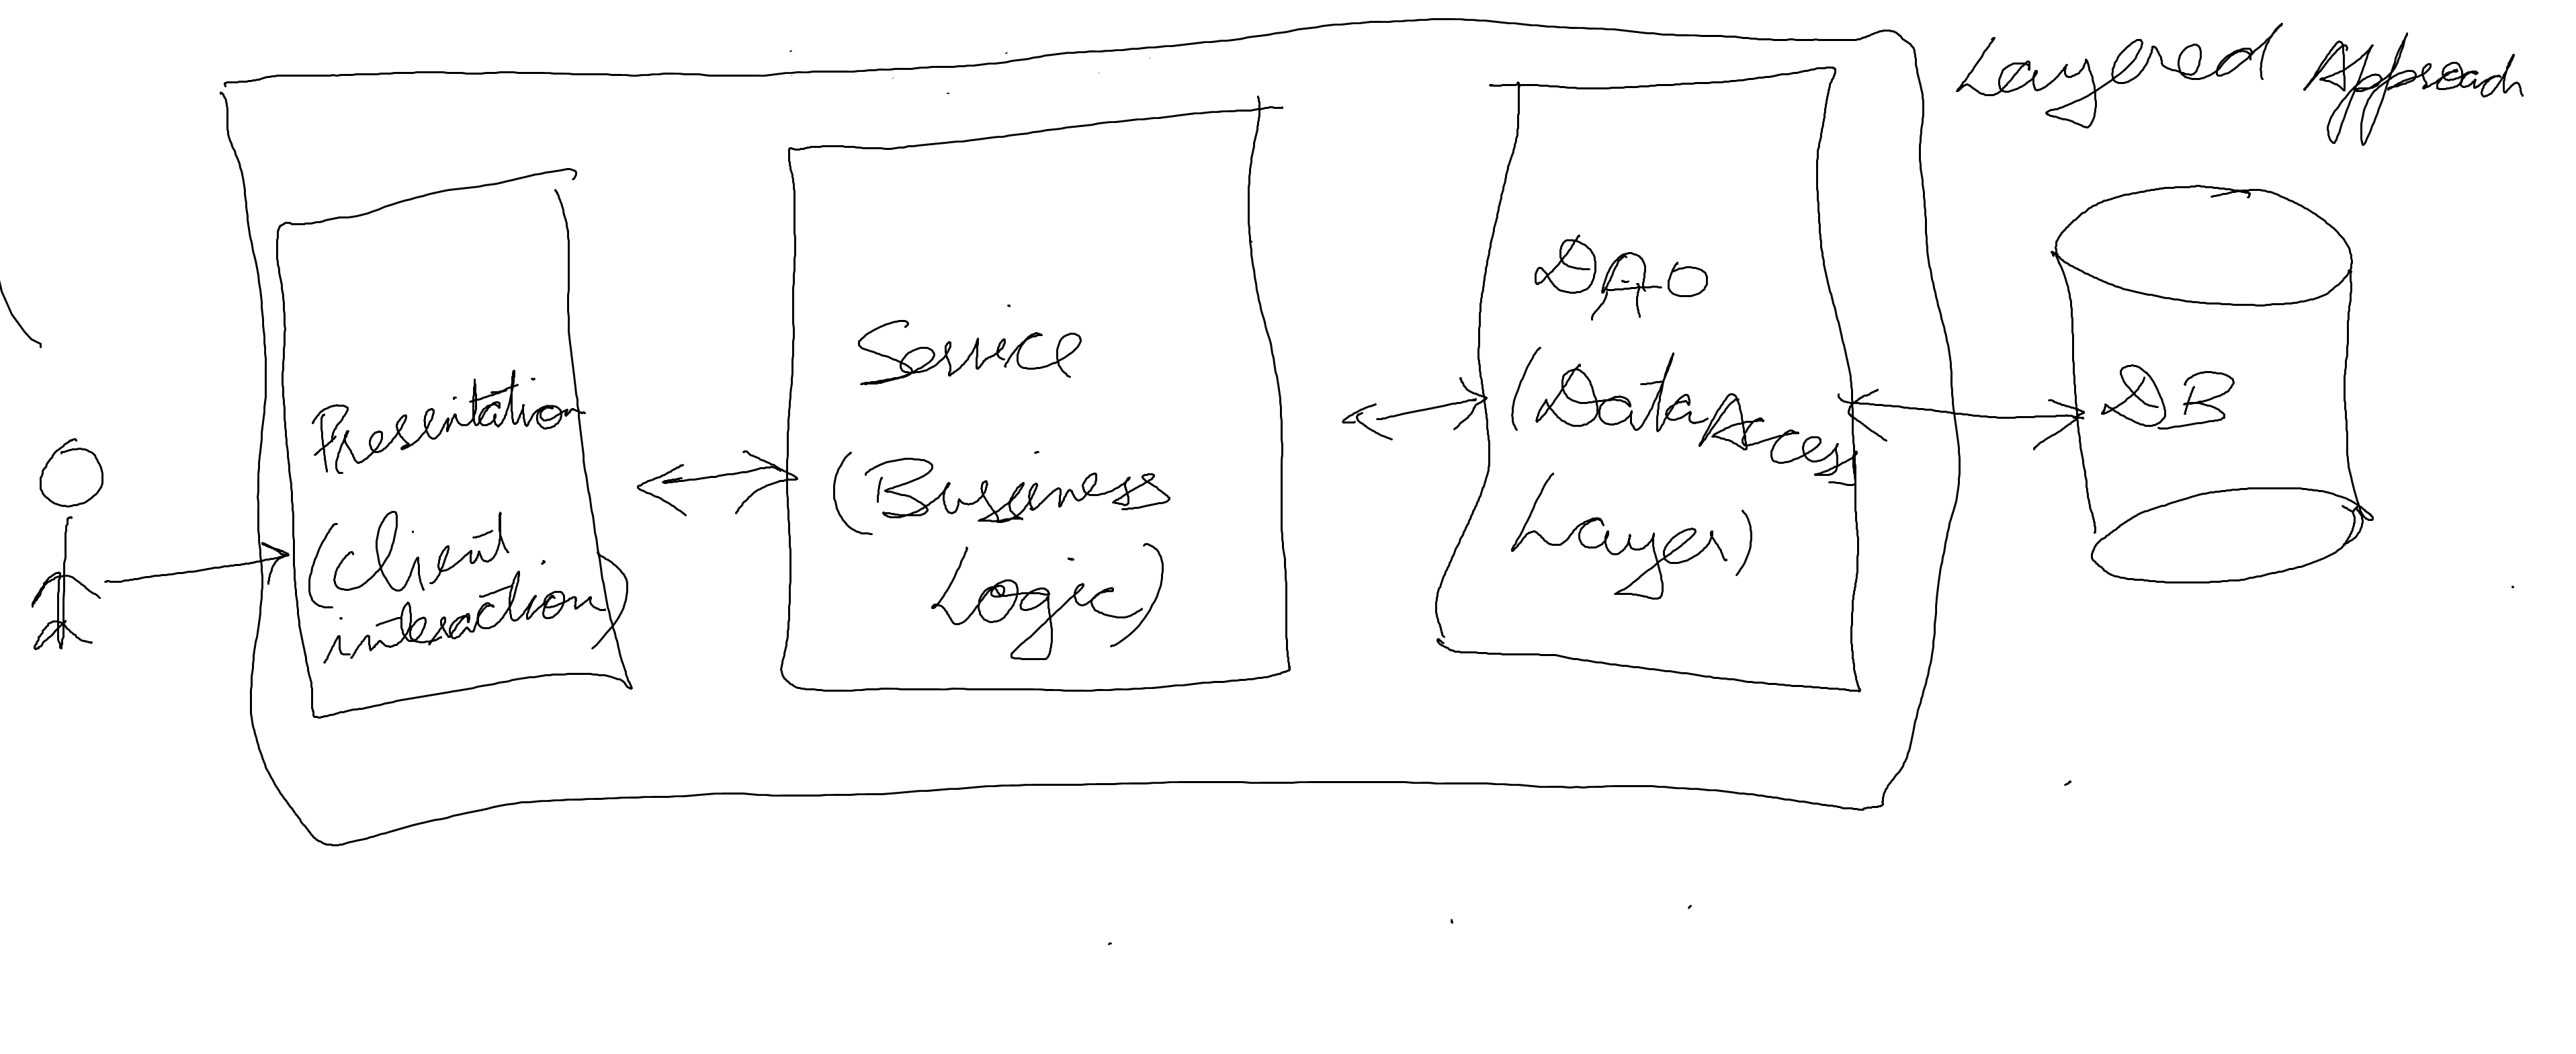 Layered Approach
Presentation
(Client
interaction)
Service
(Business
Logic)
DAO
(Data Access
Layer)
DB